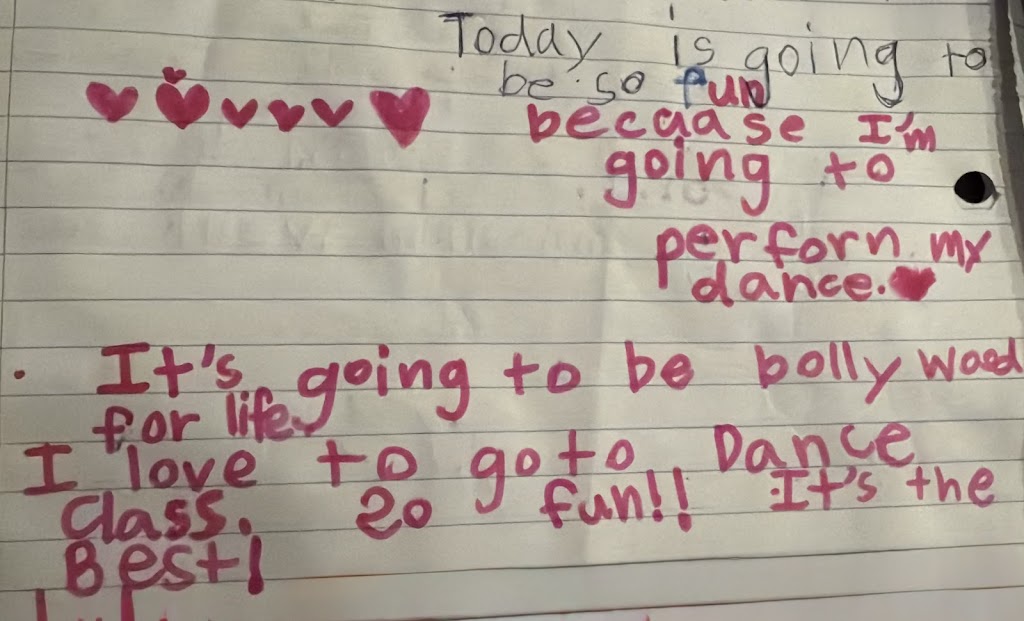 Today is going to
be so fun
becaase I'm
going to
perforn my
dance.
It's going to be bolly wood
for life.
I love to go to Dance
class. 20 fun!! It's the
Best!